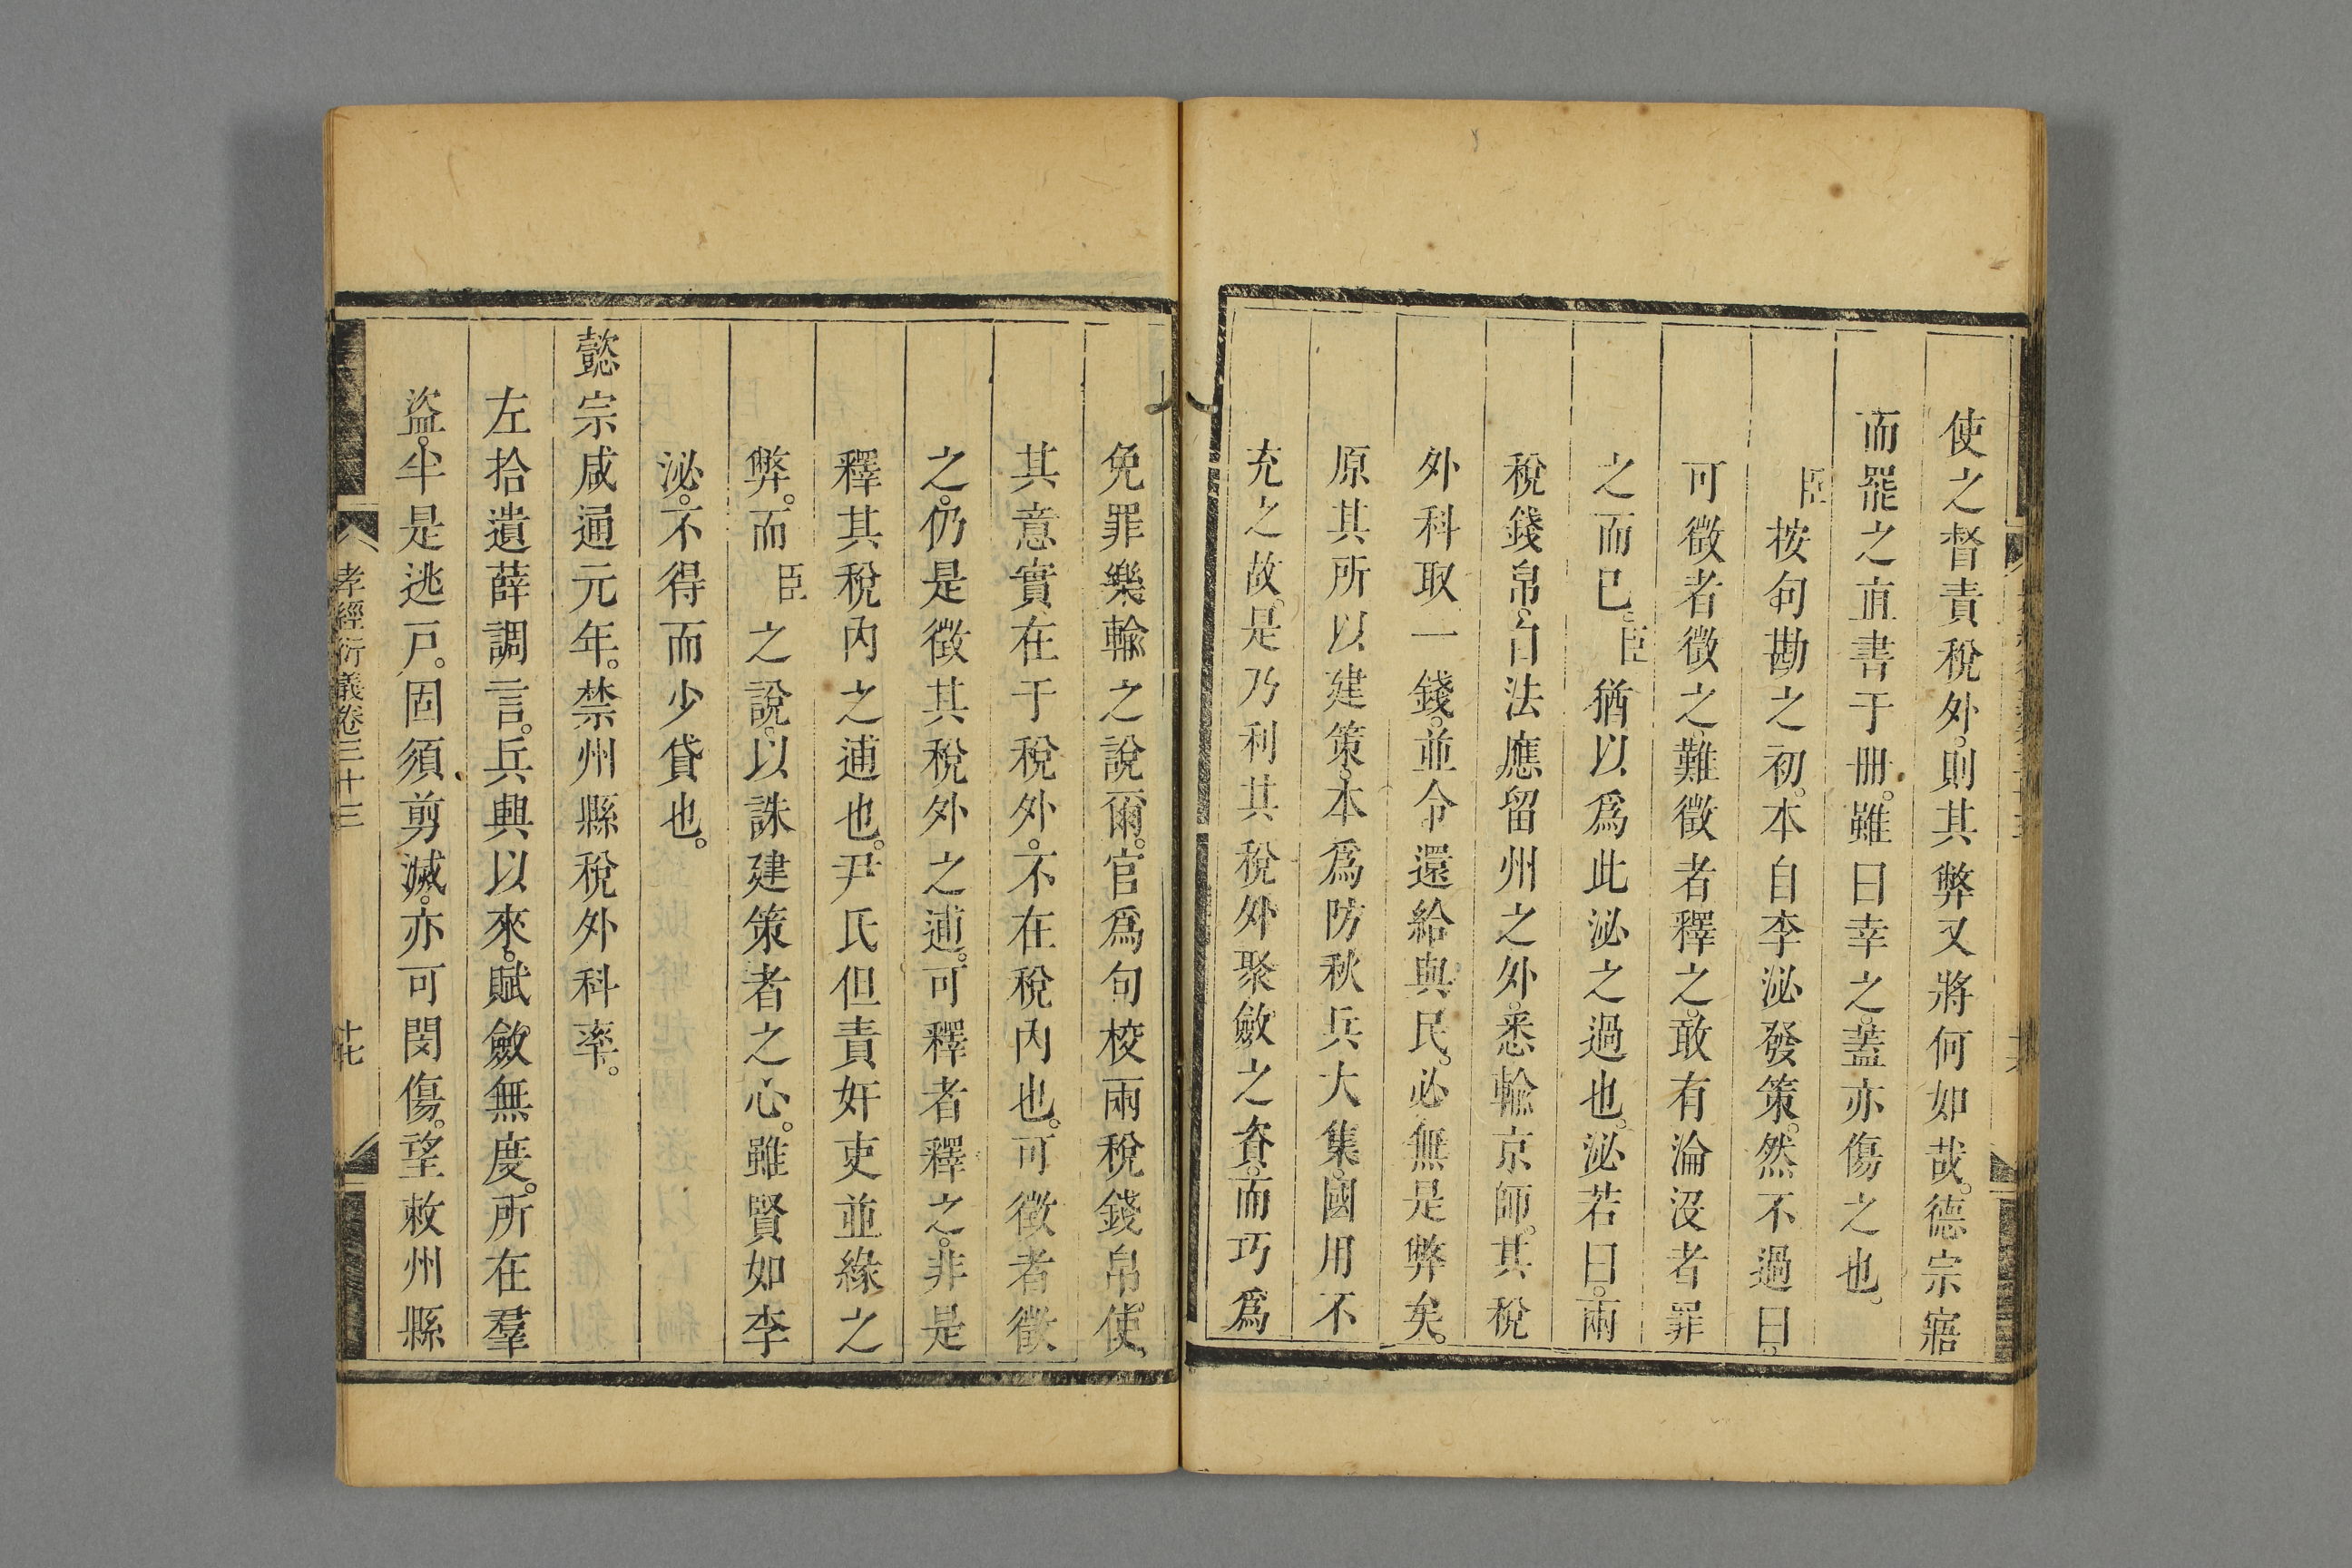 使之督責稅外。則其弊又將何如哉。德宗寤
而罷之。直書于冊。雖曰幸之。蓋亦傷之也。
臣按句勘之初。本自李泌發策。然不過曰。
可徵者徵之。難徵者釋之。敢有淪沒者罪
之而已。臣猶以爲此泌之過也。泌若曰。兩
稅錢帛。自法應留州之外。悉輸京師。其稅
外科取一錢。並令還給與民。必無是弊矣。
原其所以建策。本爲防秋兵大集。國用不
充之故。是乃利其稅外聚斂之資。而巧爲
免罪樂輸之說爾。官爲句校兩稅錢帛使。
其意實在于稅外。不在稅內也。可徵者徵
之。仍是徵其稅外之逋。可釋者釋之。非是
釋其稅內之逋也。尹氏但責奸吏並緣之
弊。而臣之說。以誅建策者之心。雖賢如李
泌。不得而少貸也。
懿宗咸通元年。禁州縣稅外科率。
左拾遺薛調言。兵興以來。賦斂無度。所在羣
盜。半是逃戶。固須剪滅。亦可閔傷。望敕州縣
孝經衍義卷三十三
十七